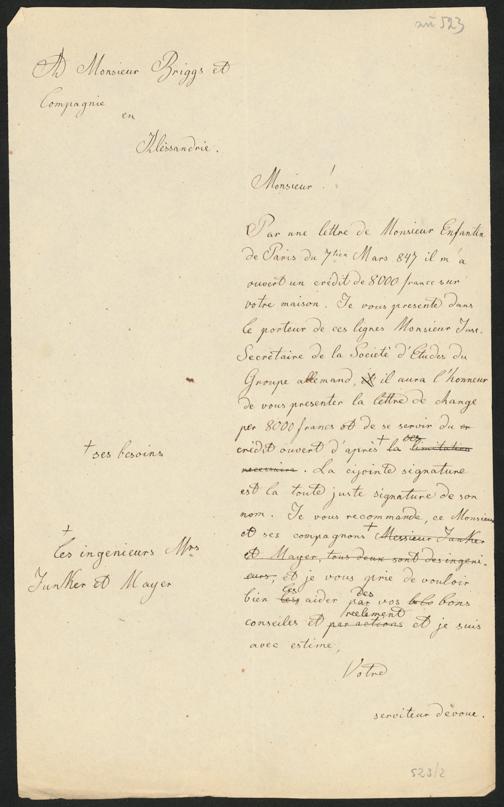 ad 523
A Monsieur Briggs et
Compagnie
en
Alessandrie.
Monsieur!
Par une lettre de Monsieur Enfantin
de Paris du 7tien Mars 847 il m'a
ouvert un crédit de 8000 franc sur
votre maison. Je vous presente dans
le porteur de ces lignes Monsieur
Secrétaire de la Societé d'Etudes du
Groupe allemand, et il aura l'honneur
de vous presenter la lettre de change
per 8000 francs et de se servir du
crédit ouvert d'après + la limitation
ses
necessaire. La cijointe signature
est la toute juste signature de son
nom. Je vous recommande, ce Monsieur
et ses compagnons + Messieur Junker
et Mayer, tous deux sont des ingeni-
eurs, et je vous prie de vouloir
bien les aider par vos bons
les
des
conseiles et par actions et je suis
réelement
avec estime,
Votre
serviteur dévoue.
+ ses besoins
+
les ingenieurs Mrs
Junker et Mayer
523/2